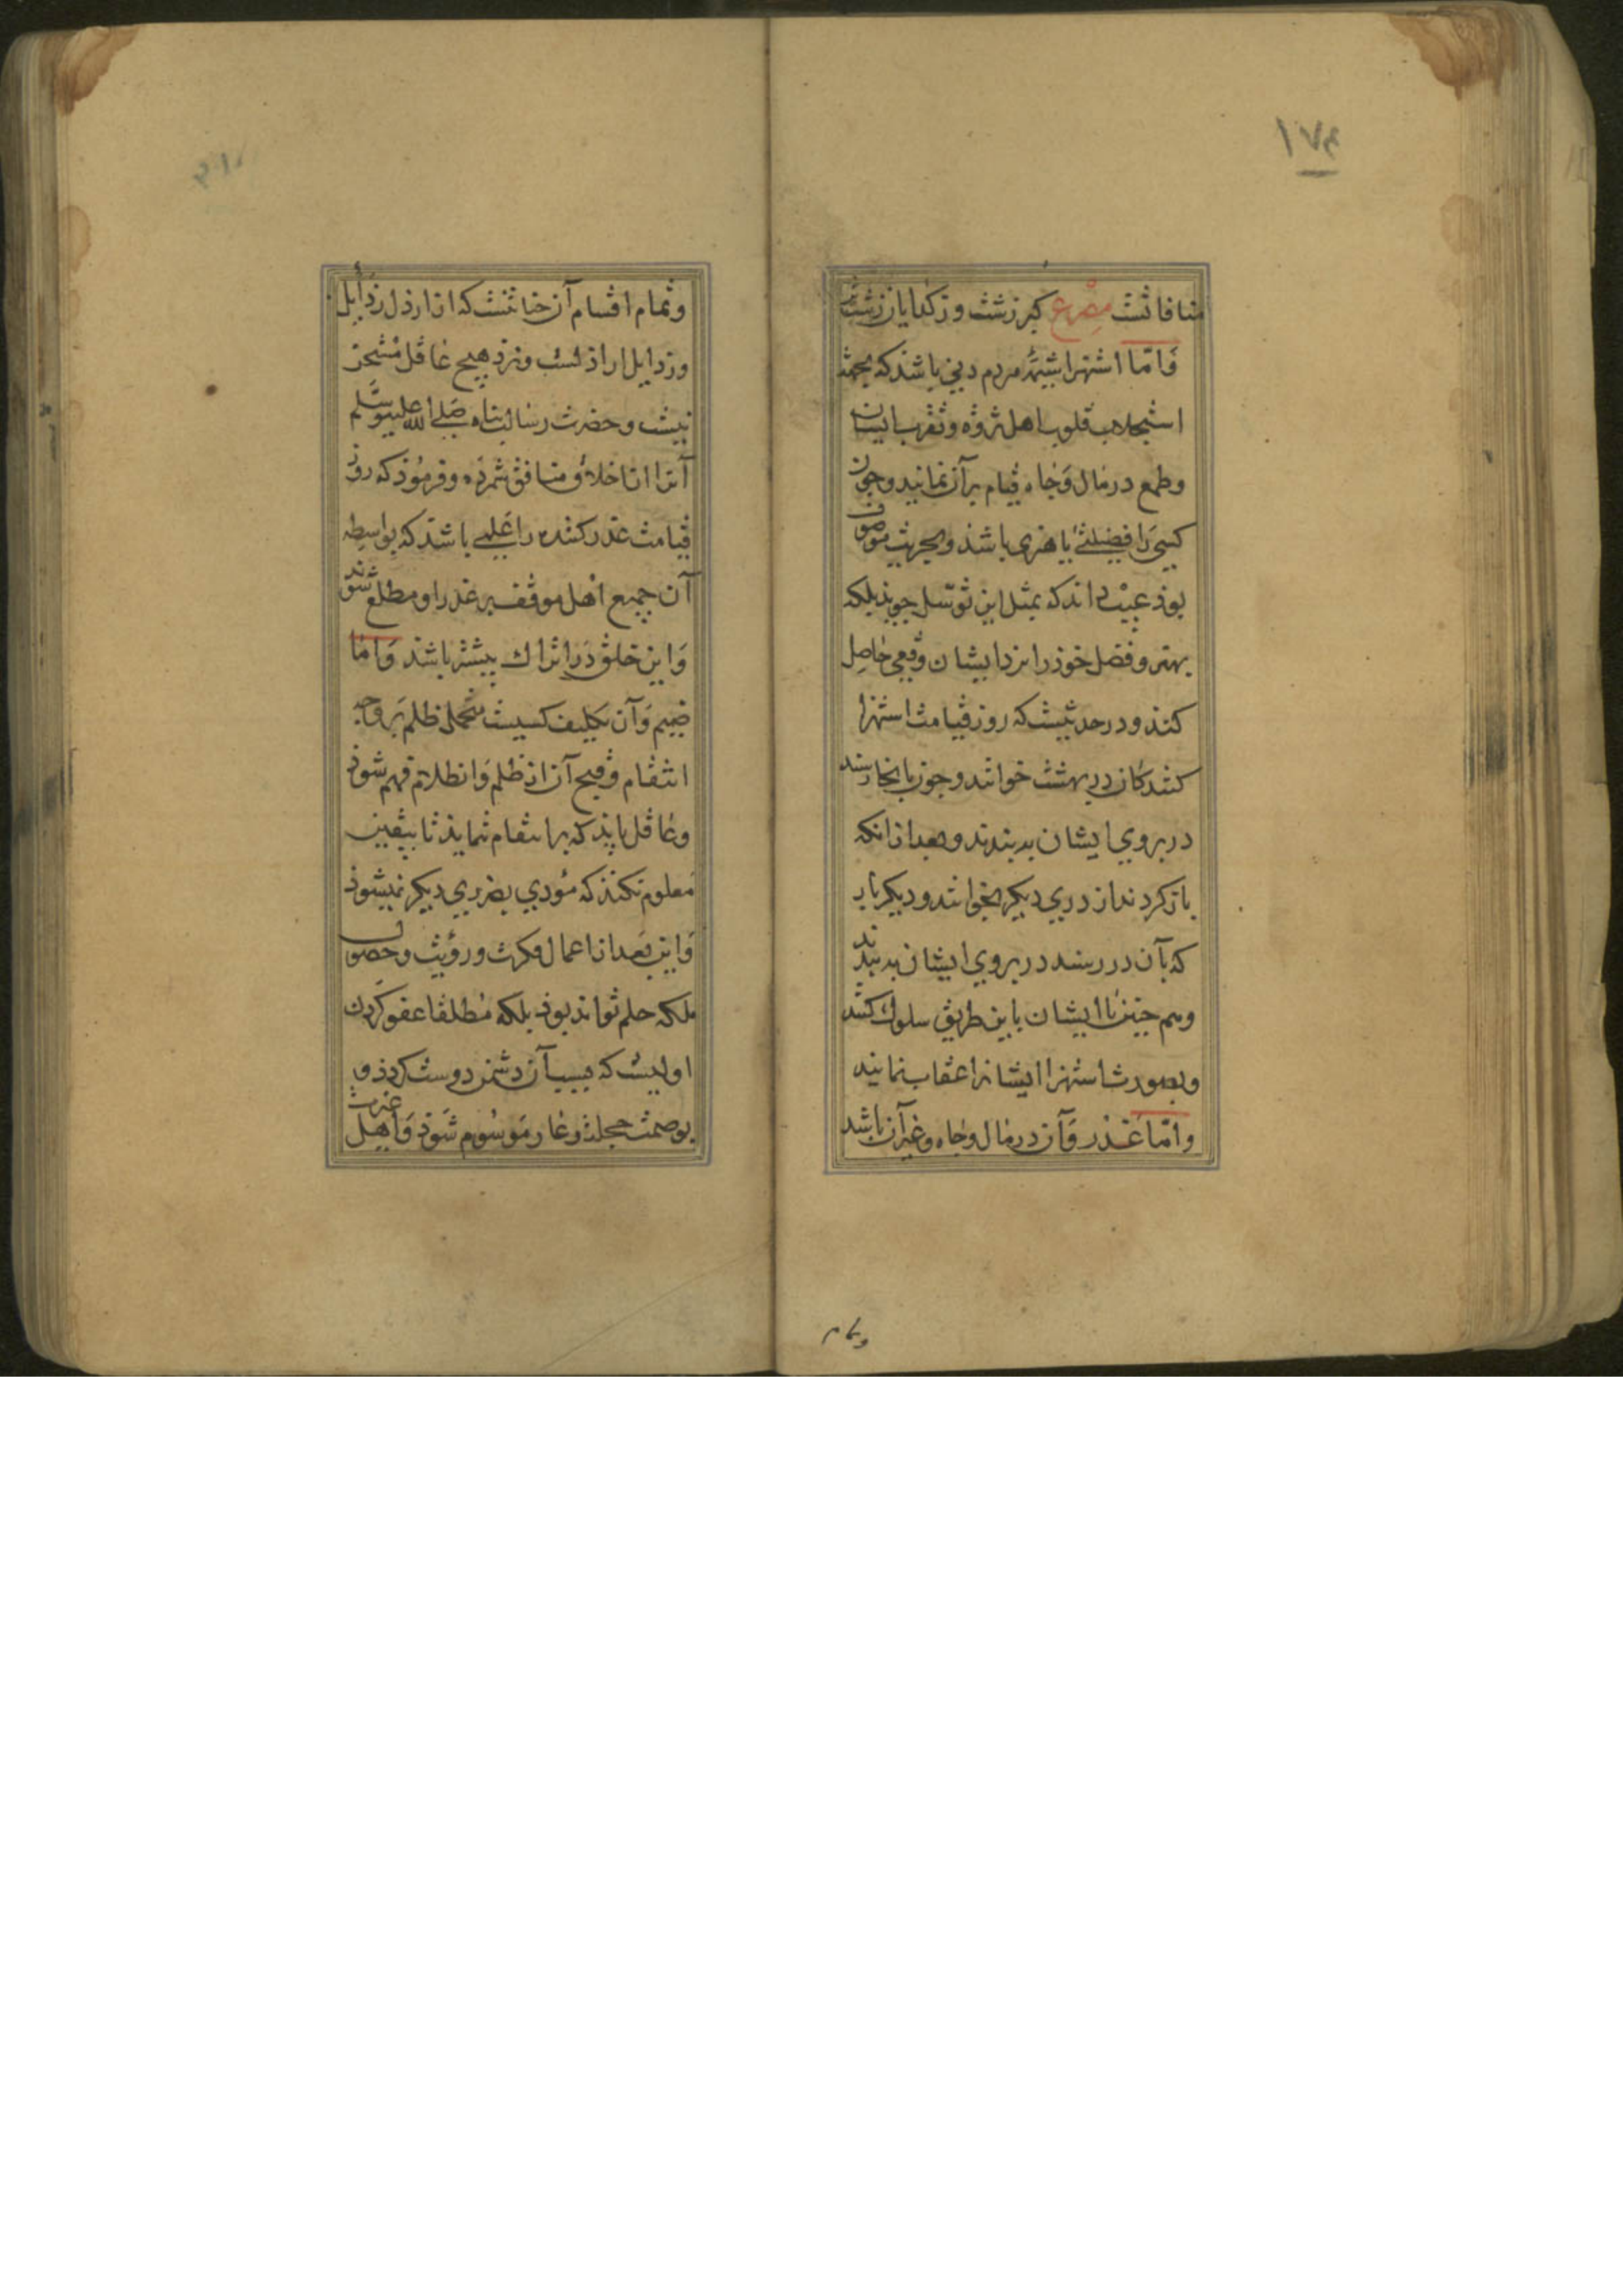 ۱۷۴
منافاتست مصرع کبر زشت وز کدایان زشت‌تر
وَامّا استهزا شیمۀ مردم دنی باشد که بجهت
استجلاب قلوب اهل ثروة و تقرب بایشان
وطمع در مال وَجاه قیام بر آن نمایند وجون
کسی را فضیلتی یا هنری باشد وبحریت موصوف
بوذ عیب داند که بمثل این توسّل جویذ بلکه
بهنر و فضل خوذ را نزد ایشان وقعی حاصِل
کند ودر حدیثست که روز قیامت استهزا
کنندکان در بهشت خوانند وجون بانجا رسند
در بروی ایشان به بندند وبعد از انکه
باز کردند از دری دیکر بخوانند ودیکر بار
که بآن در رسند در بروی ایشان به بندند
وهم جنین با ایشان باین طریق سلوک کنند
وبصورت استهزا ایشانرا عقاب نمایند
وامّا غدر وَآن در مال وجاه وغیر آن باشد
وتمام
وتمام اقسام آن خیانتست که از ارذل رذایل
ورذایل اراذلست ونزد هیچ عاقل مستحسن
نیست وحضرت رسالت پناه صَلی الله علیه وسَلم
آنرا از اخلاق منافق شمرده وفرمُوذ که روز
قیامت غدر کننده را عَلمی باشد که بواسِطه
آن جمیع اهل موقف بر غدر او مطلع شوند
وَاین خلق دَر اتراک بیشتر باشد وَامّا
ضیم وَآن تکلیف کسیست بتحمل ظلم بَر وجه
انتقام وقبح آن از ظلم وَانظلام فهم شوذ
وعاقل بایذ که بر انتقام ننمایذ تا بیقین
مَعلوم نکند که مُؤدی بضرری دیکر نمیشوذ
وَاین بَعد از اعمال فکرت ورؤیت وحصول
ملکه حلم تواند بوذ بلکه مُطلقا عفو کَردن
اولیست که بسبب آن دشمن دوست کردذ و
بوصمت خجلت وعار مَوسُوم شوَذ وَاهل عزت